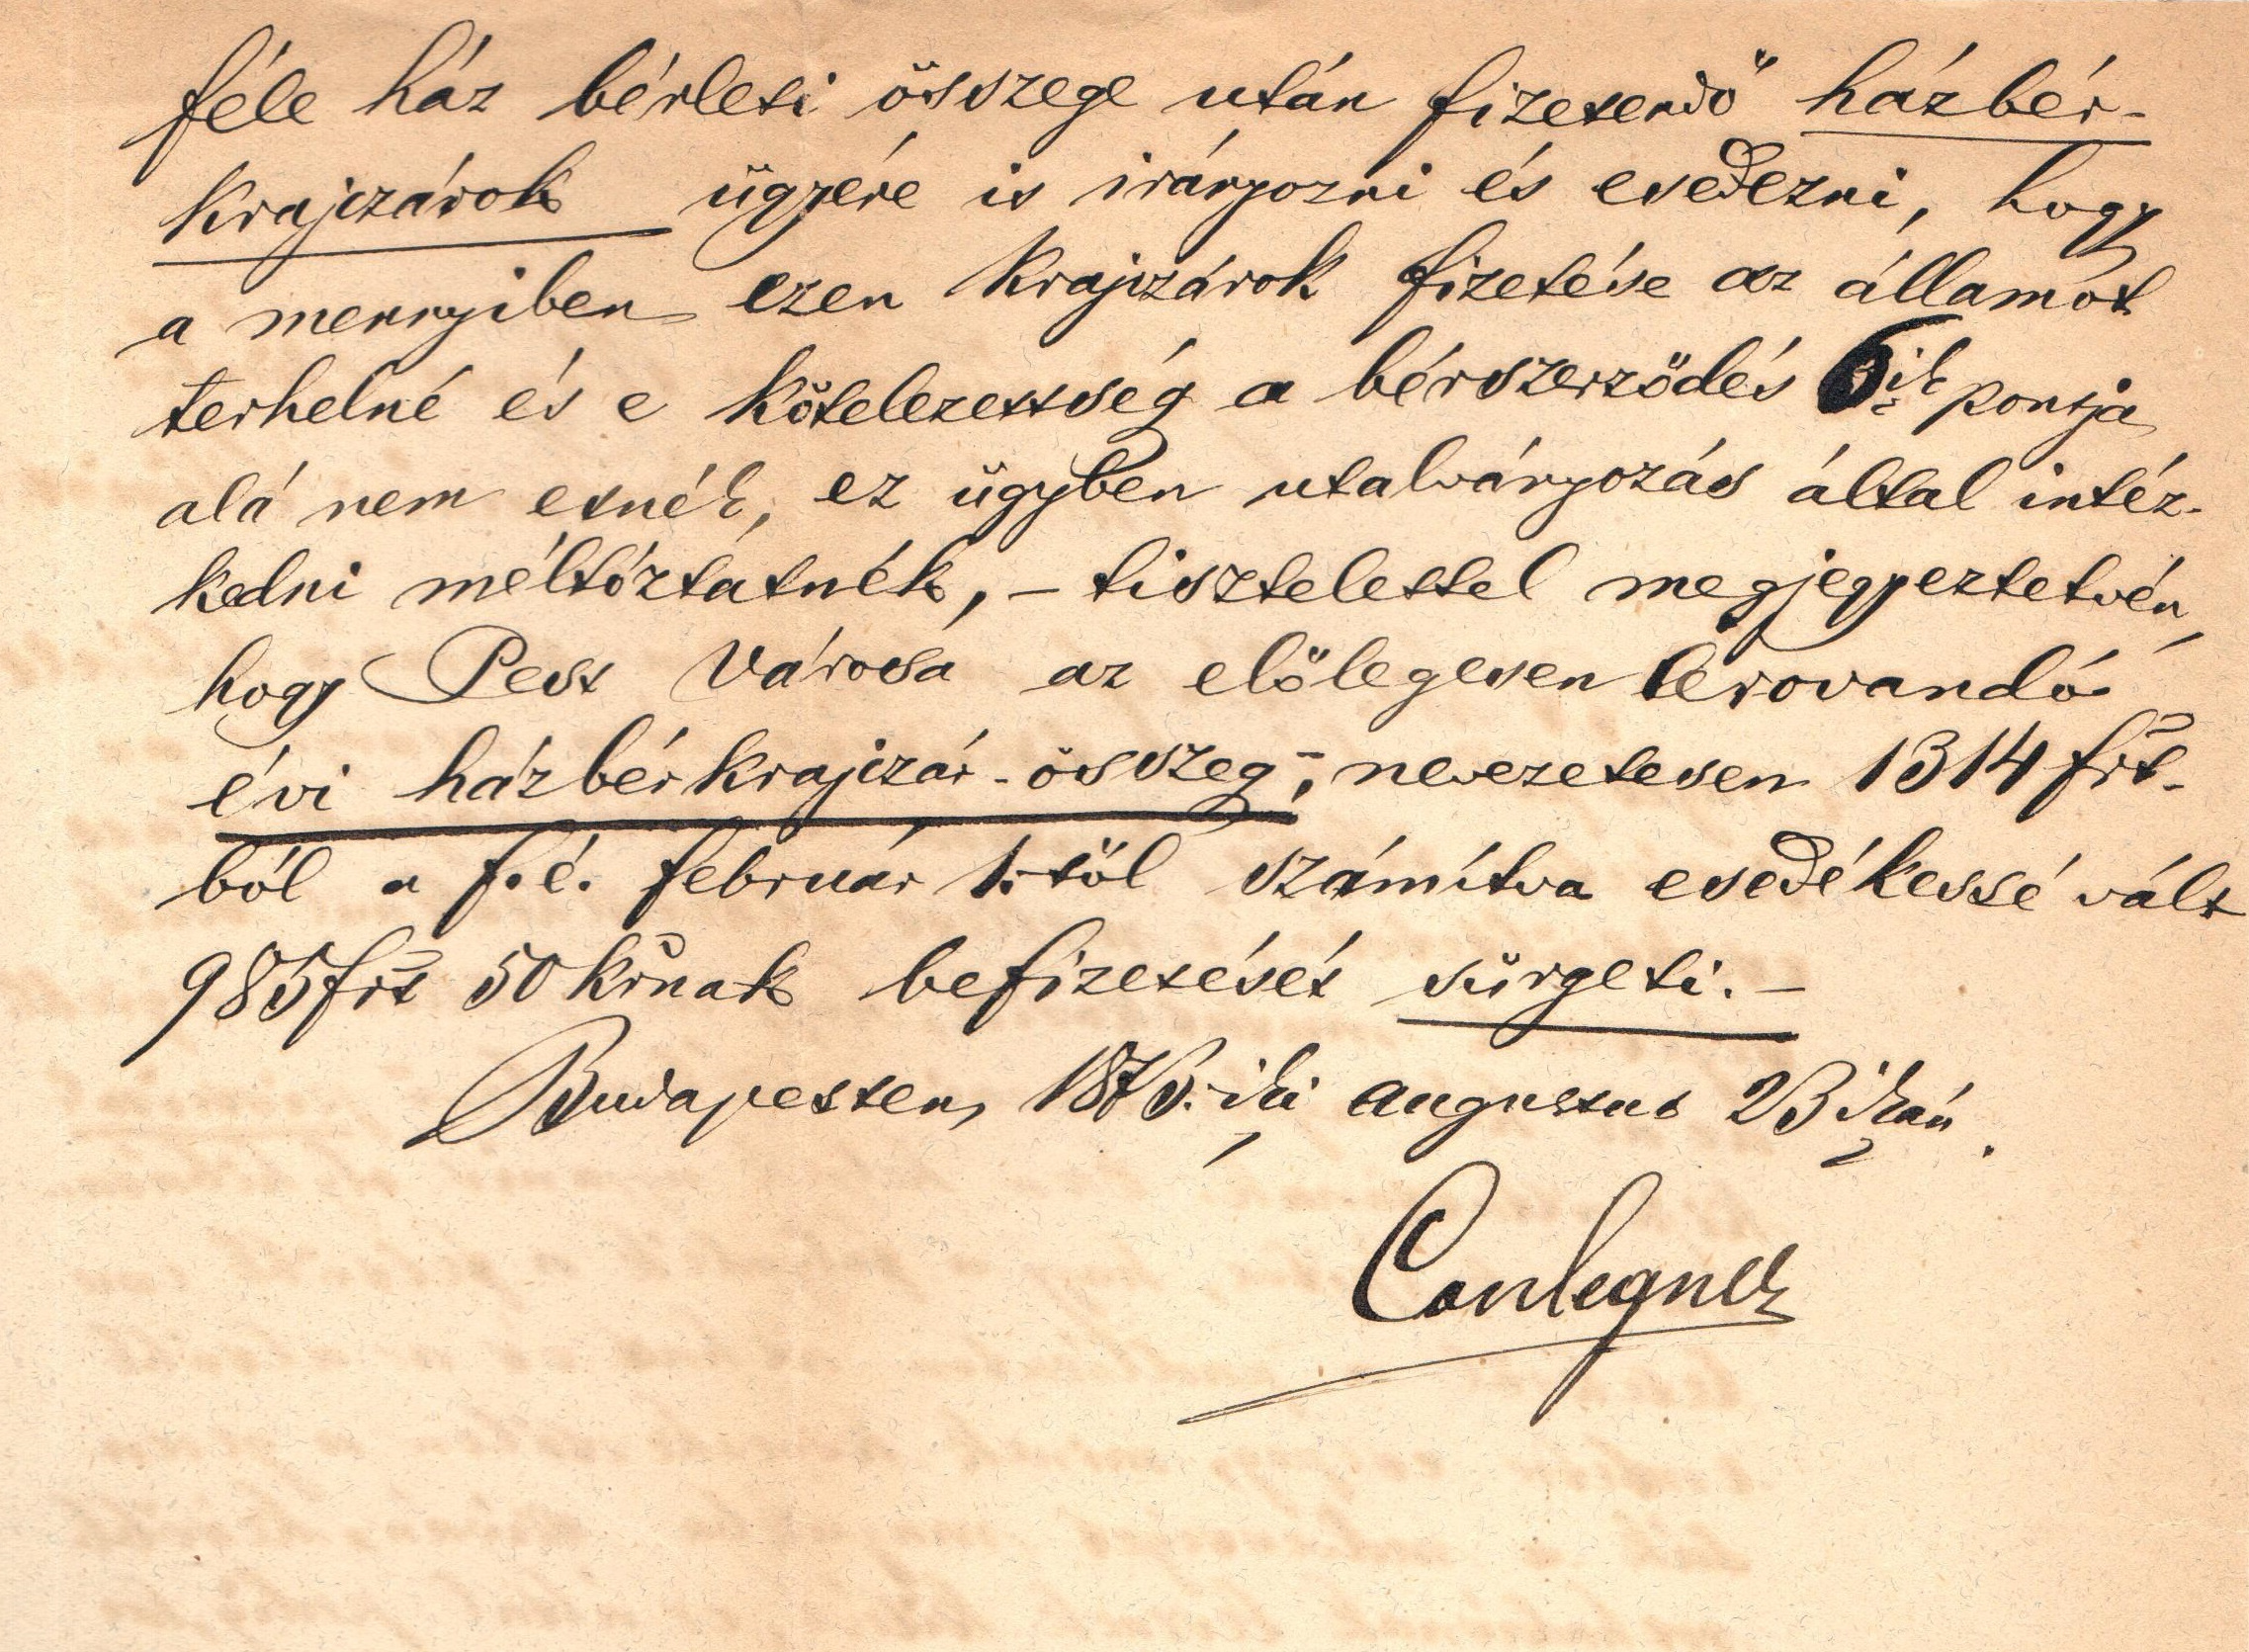 féle ház bérleti összege után fizetendő házbér-
krajczárok ügyére is irányozni és esedezni, hogy
a mennyiben ezen krajczárok fizetése az államot
terhelné és e kötelezettség a bérszerződés 6ik pontja
alá nem esnék, ez ügyben utalványozás által intéz-
kedni méltóztatnék, – tisztelettel megjegyeztetvén,
hogy Pest városa az előlegesen lerovandó
évi házbérkrajczár-összeg, nevezetesen 1314 frt-
ból a f. é. február 1-től számítva esedékessé vált
985 frt 50 krnak befizetését sürgeti. –
Budapesten, 1875-iki augustus 23ikán.